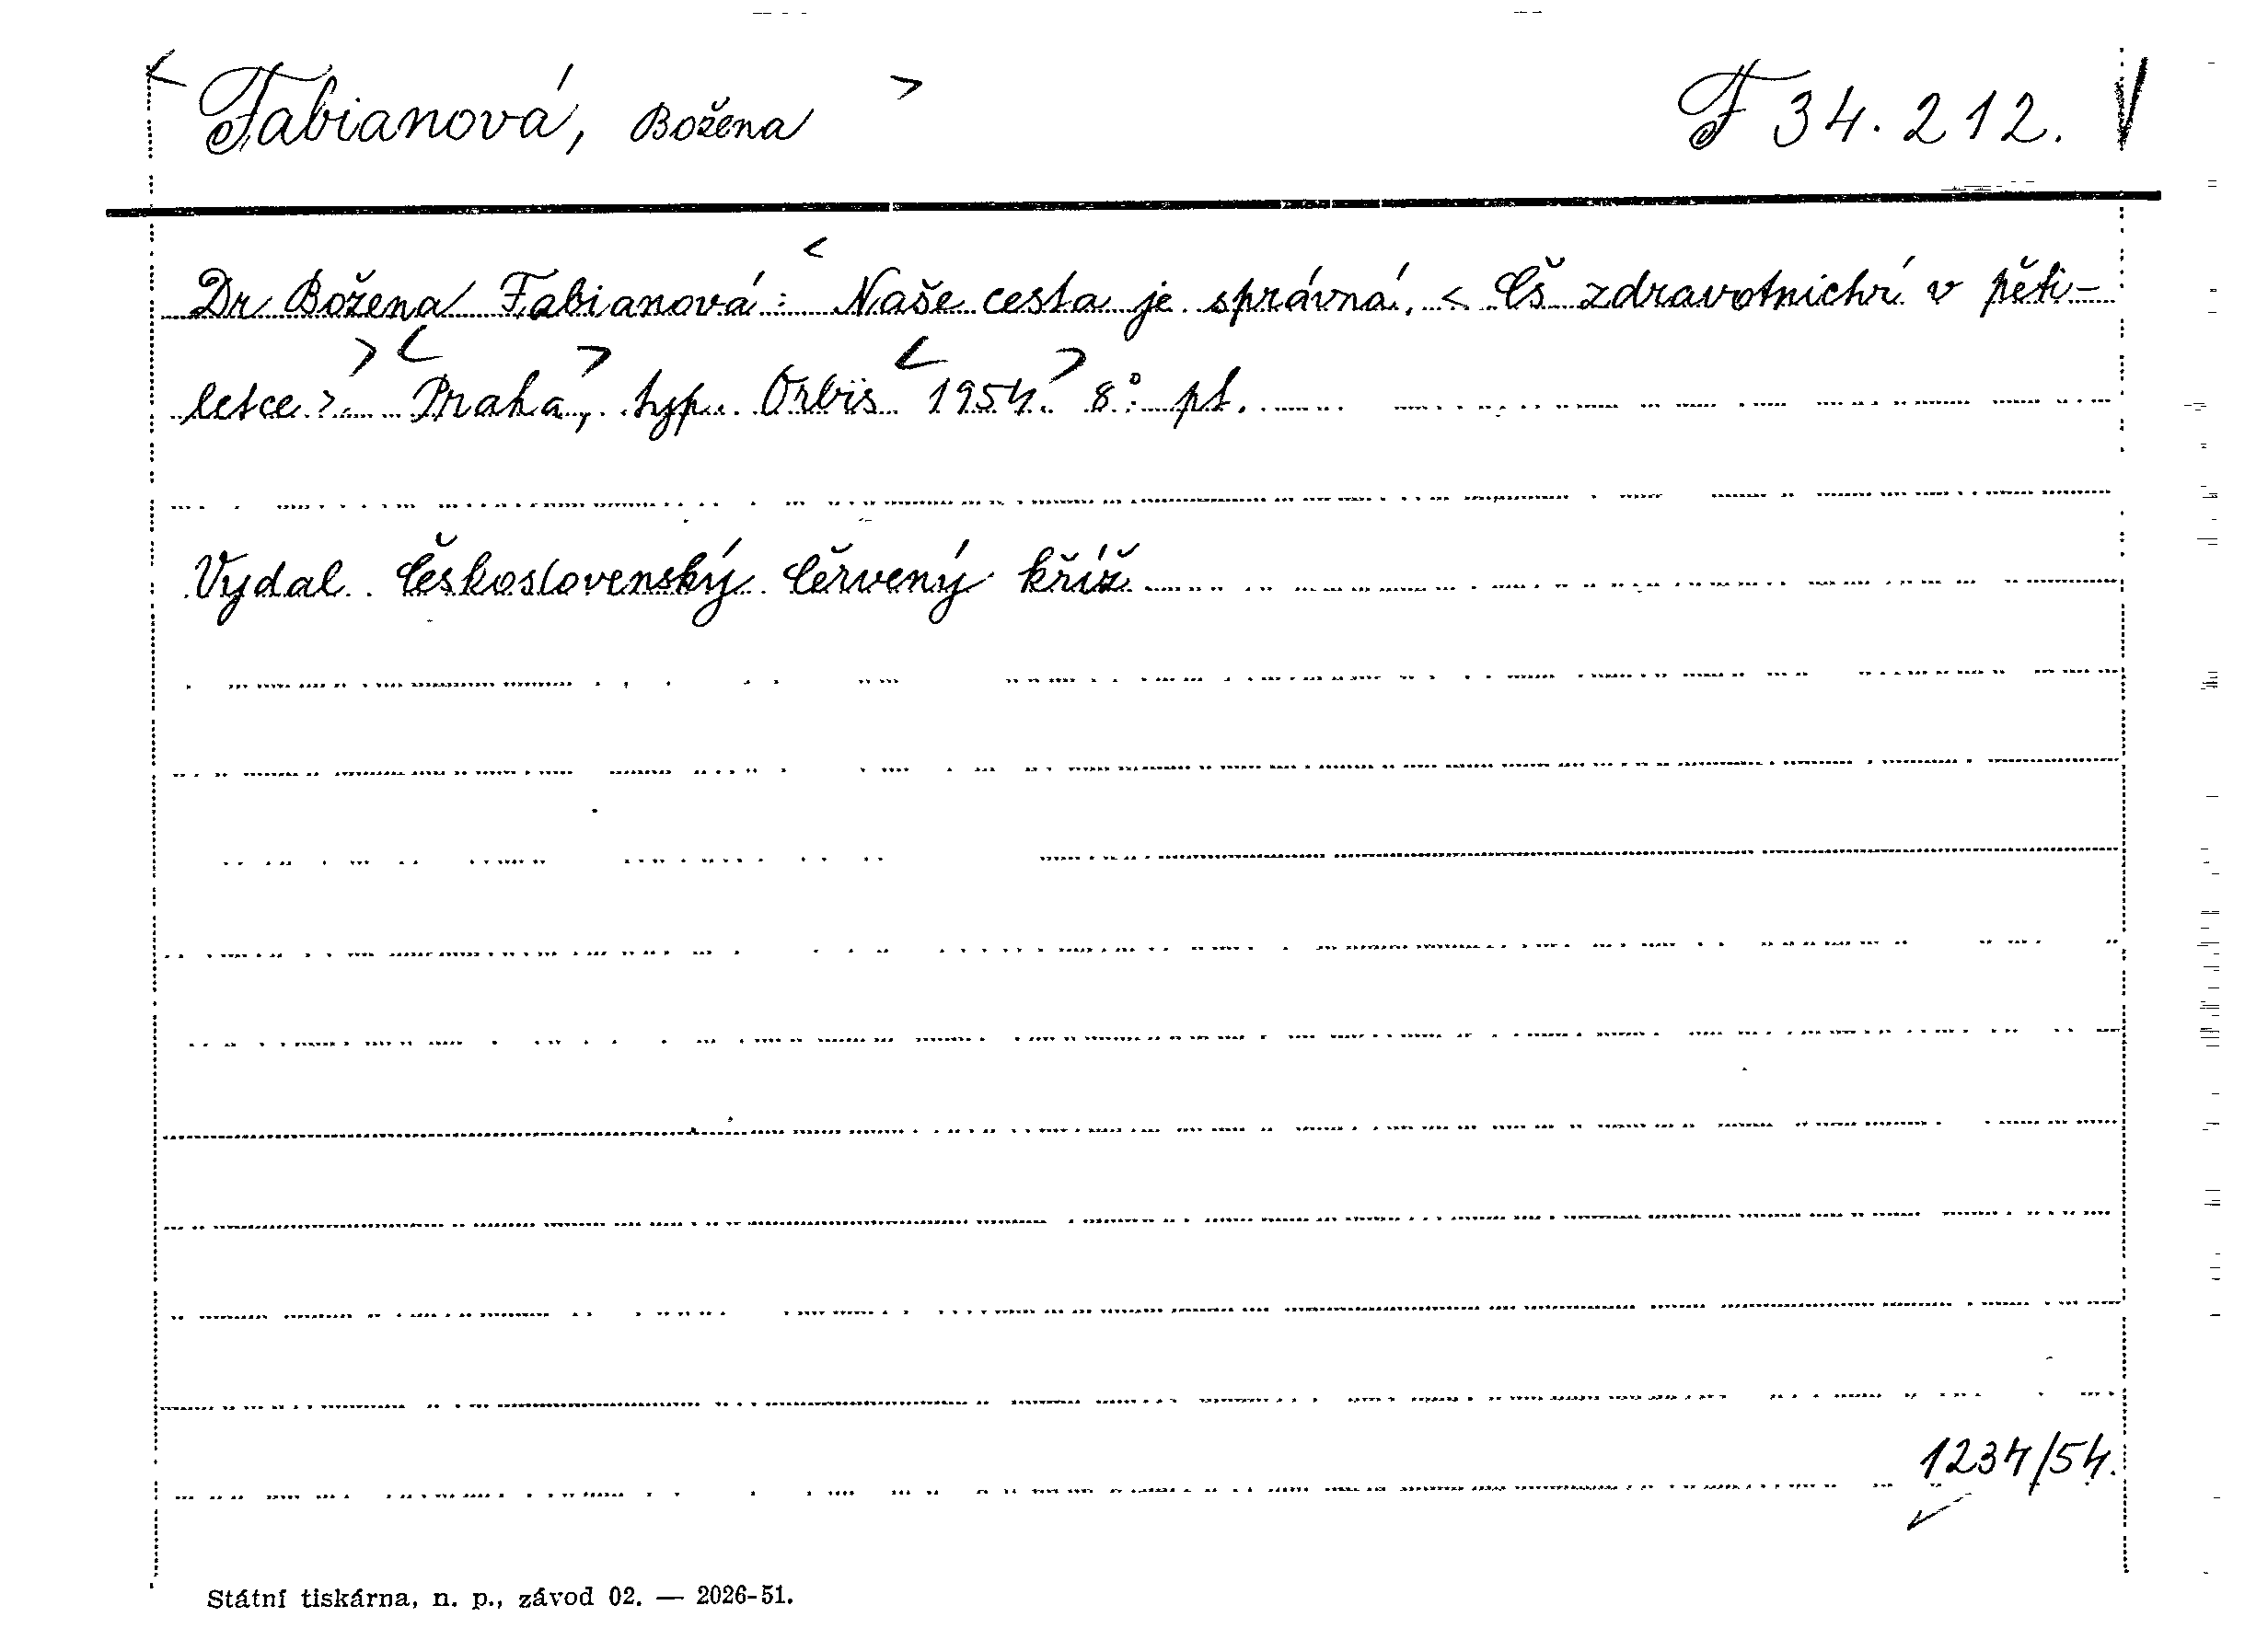 < Fabianová, Božena > F 34.212.
Dr Božena Fabianová: < Naše cesta je správná. < Čs zdravotnictví v pěti-
letce >. > < Praha, > typ. Orbis < 1954. > 8° pt.
Vydal Československý Červený kříž
1234/54.
Státní tiskárna, n. p., závod 02. — 2026-51.